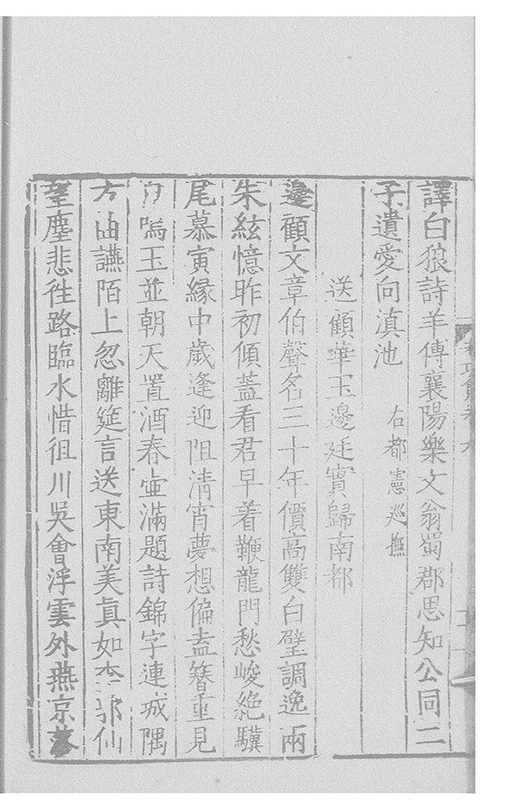 譯白狼詩羊傅襄陽樂文翁蜀郡思知公同二
子遺愛向滇池 右都憲巡撫
送顧華玉邊廷實歸南都
邊顧文章伯聲名三十年價高雙白璧調逸兩
朱絃憶昨初傾蓋看君早着鞭龍門愁峻絕驥
尾慕寅縁中歲逢迎阻清宵夢想偏盍簪重見
玉並朝天置酒春壺滿題詩錦字連城隅
方讌陌上忽離筵言送東南美真如李郭仙
望塵悲徃路臨水惜徂川吳會浮雲外燕京